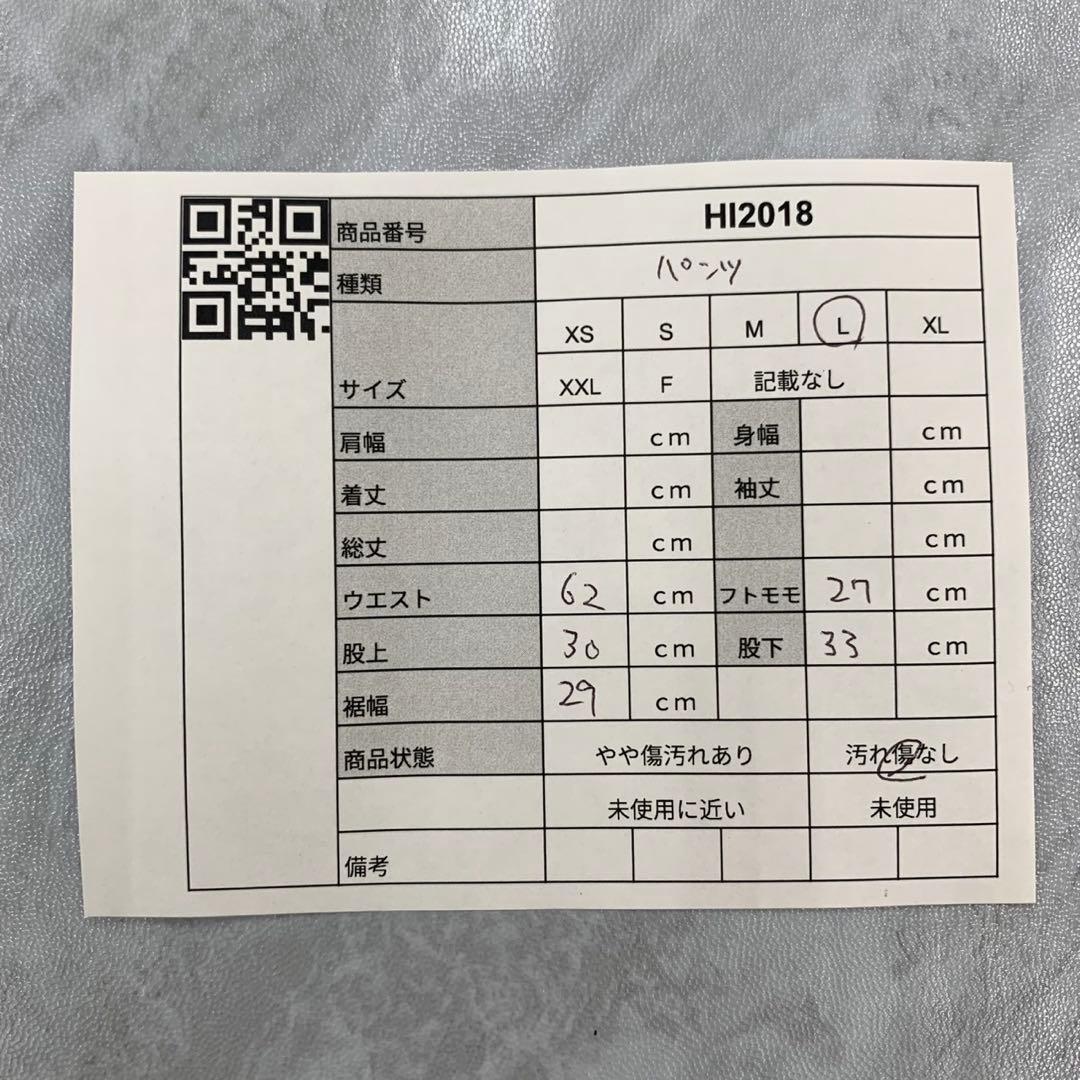 商品番号 HI2018
種類 パンツ
XS S M L XL
サイズ XXL F 記載なし
肩幅 cm 身幅 cm
着丈 cm 袖丈 cm
総丈 cm cm
ウエスト 62 cm フトモモ 27 cm
股上 30 cm 股下 33 cm
裾幅 29 cm
商品状態 やや傷汚れあり 汚れ傷なし
未使用に近い 未使用
備考